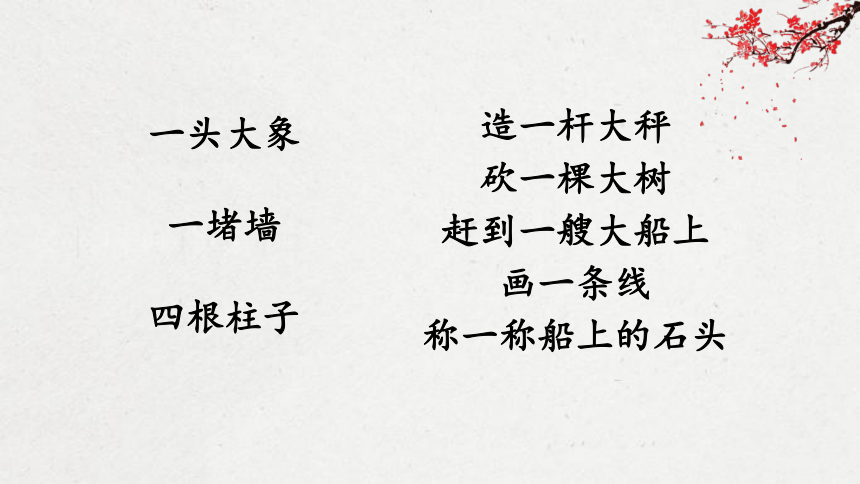 一头大象
一堵墙
四根柱子
造一杆大秤
砍一棵大树
赶到一艘大船上
画一条线
称一称船上的石头